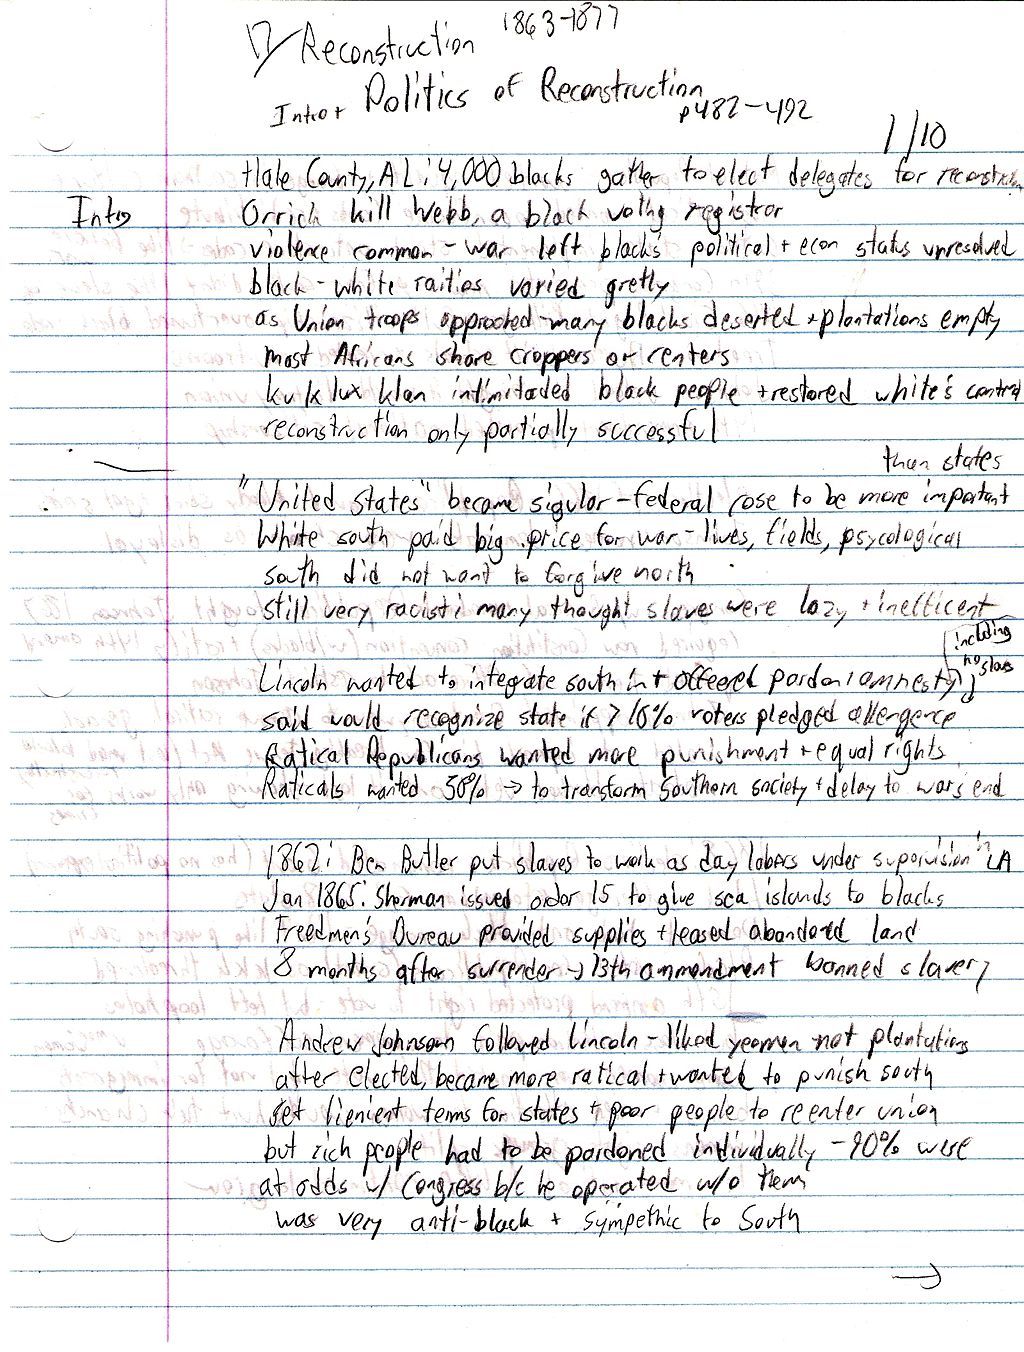 17/ Reconstruction 1863-1877
Intro + Politics of Reconstruction
p482-492
1/10
Hale County, AL: 4,000 blacks gather to elect delegates for reconstruction
Intro
Orrick kill Webb, a black voting registrar
violence common - war left blacks political + econ status unresolved
black - white raities varied gretly
as Union troops approached many blacks deserted + plantations empty
most Africans share croppers or renters
ku klux klan intimitaded black people + restored white's control
reconstruction only partially successful
than states
"United States" became sigular - federal rose to be more important
White south paid big price for war - lives, fields, psycological
south did not want to forgive north
still very racist: many thought slaves were lazy + inefficent
including
no slaves
Lincoln wanted to integrate south in + offered pardon/amnesty
said would recognize state if >10% voters pledged allergence
Ratical Republicans wanted more punishment + equal rights
Raticals wanted 50% → to transform Southern society + delay to wars end
1862: Ben Butler put slaves to work as day labors under supervision in LA
Jan 1865: Sherman issued order 15 to give sea islands to blacks
Freedmen's Bureau provided supplies + leased abandoned land
8 months after surrender → 13th ammendment banned slavery
Andrew Johnson followed Lincoln - liked yeomen not plantations
after elected, became more ratical + wanted to punish south
set lienient terms for states + poor people to reenter union
but rich people had to be pardoned individually - 90% were
at odds w/ Congress b/c he operated w/o them
was very anti-black + sympethic to South
→